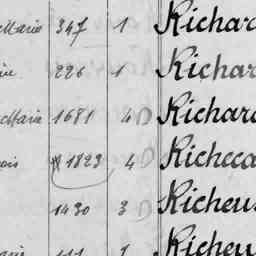 Marie 347 1 Richar
226 1 Richar
Marie 1681 4 D Richar
1823 4 D Richea
1430 3 D Richeu
1 Richeu